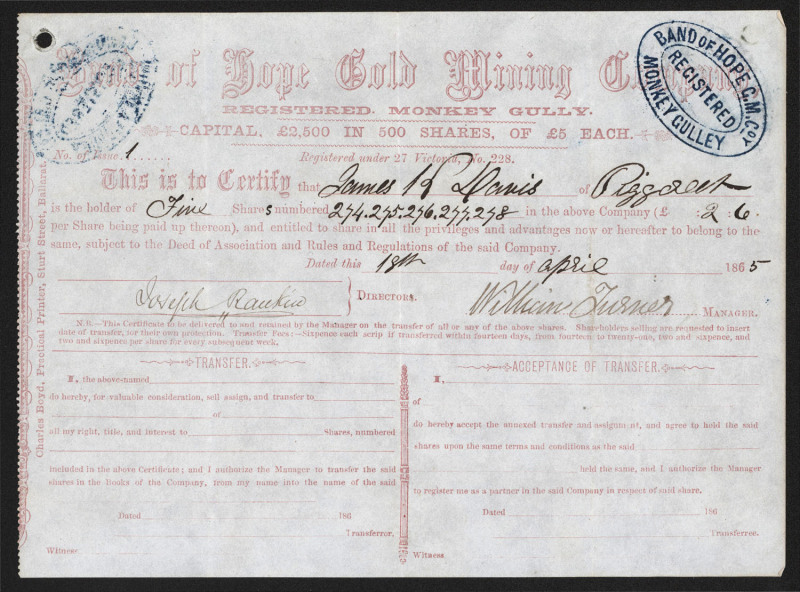 Band of Hope Gold Mining Company
REGISTERED. MONKEY GULLY.
CAPITAL, £2,500 IN 500 SHARES, OF £5 EACH.
BAND OF HOPE G.M. Coy
REGISTERED
MONKEY GULLEY
No. of Issue 1...... Registered under 27 Victoria, No. 228.
This is to Certify that James H Davis of
is the holder of Five Shares numbered 274.275.276.277.278 in the above Company (£ : 2 : 6.
per Share being paid up thereon), and entitled to share in all the privileges and advantages now or hereafter to belong to the
same, subject to the Deed of Association and Rules and Regulations of the said Company.
Dated this 18th day of April 1865
Joseph Rankin } DIRECTORS. William Turner MANAGER.
N.B.—This Certificate to be delivered to and retained by the Manager on the transfer of all or any of the above shares. Shareholders selling are requested to insert
date of transfer, for their own protection. Transfer Fees:—Sixpence each scrip if transferred within fourteen days, from fourteen to twenty-one, two and sixpence, and
two and sixpence per share for every subsequent week.
TRANSFER.
I, the above-named
do hereby, for valuable consideration, sell assign, and transfer to
of
all my right, title, and interest to Shares, numbered
included in the above Certificate; and I authorize the Manager to transfer the said
shares in the Books of the Company, from my name into the name of the said
Dated 186
Transferror.
Witness
ACCEPTANCE OF TRANSFER.
I,
of
do hereby accept the annexed transfer and assignm nt, and agree to hold the said
shares upon the same terms and conditions as the said
held the same, and I authorize the Manager
to register me as a partner in the said Company in respect of said share.
Dated 186
Transferree.
Witness
Charles Boyd, Practical Printer, Sturt Street, Ballarat